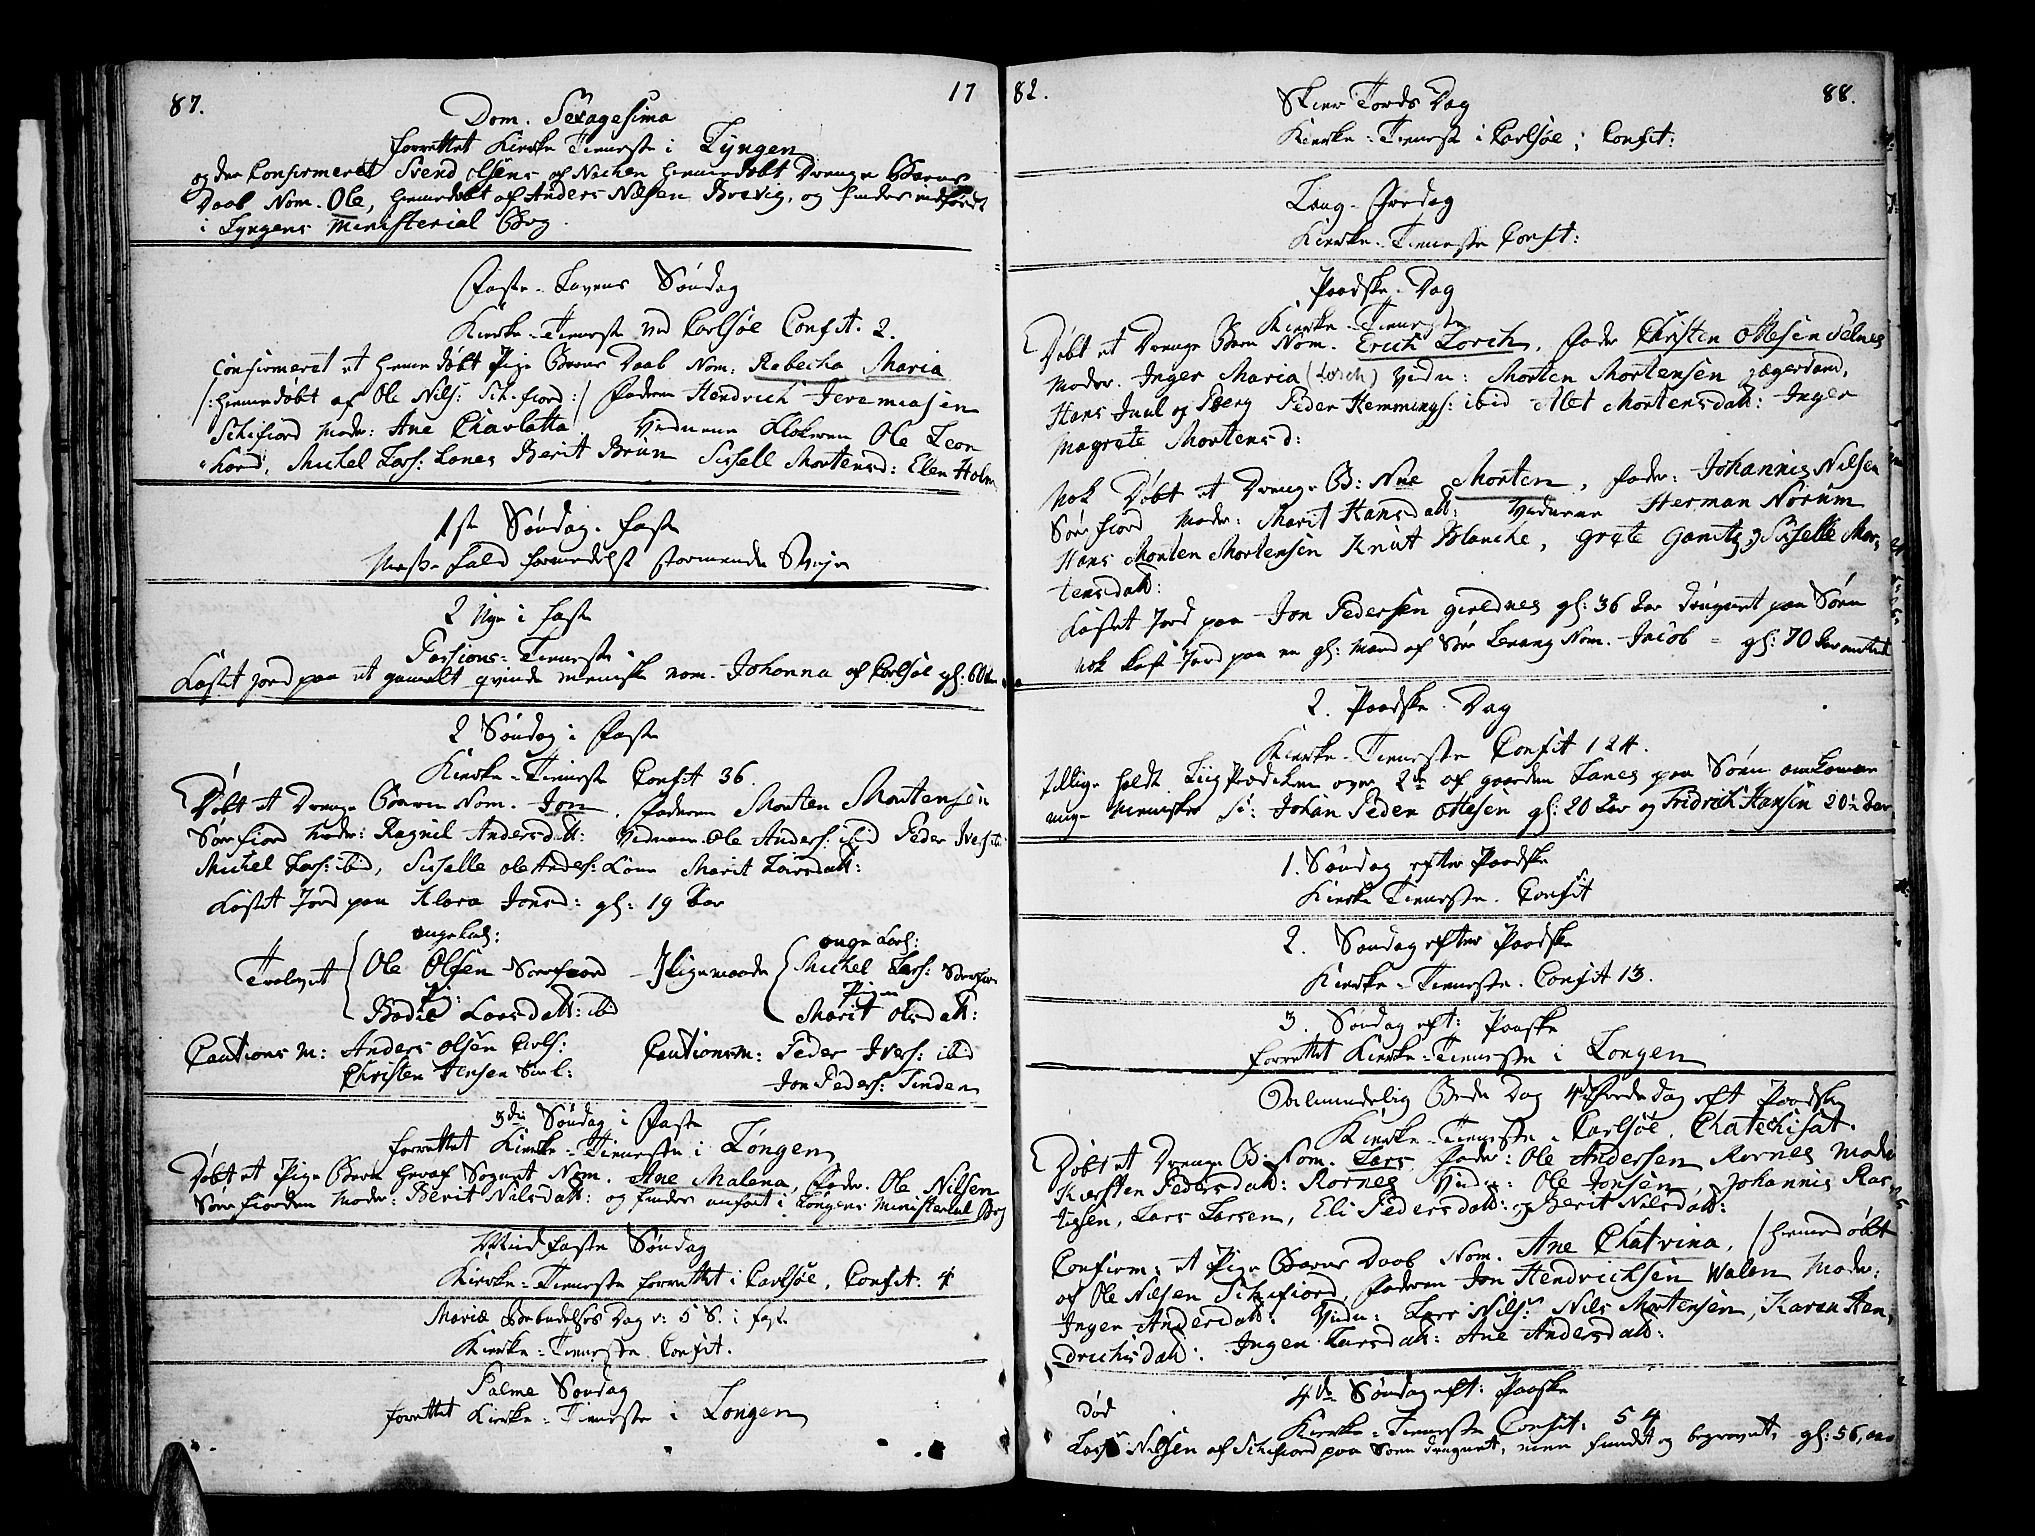 87. 17
Dom. Sexagesima
forrettet Kirke-Tieneste i Lyngen
og der Confirmeret Svend Olsens af Nichen hiemmedøbt Drenge Barns
Daab Nom. Ole, hiemedøbt af Anders Nilsen Brevig, og findes indført
i Lyngens Ministerial Bog
Faste-Lavens Søndag
Kirke-Tieneste ved Carlsøe Confit. 2.
Confirmeret et hiemedøbt Pige Barns Daab Nom: Rebecha Maria
/: hiemedøbt af Ole Nils: Schifiord :/ Faderen Hendrich Jeremiasen
Schifiord Moder: Ane Charlotta Vidnerne Klokeren Ole Leon
hard, Michel Lars: Lanes Berit Brun Sissell Mortensd: Ellen Holm
1ste Søndag i faste
Messe fald formedelst stormende Veyr
2 Uge i faste
Passions-Tieneste
Kastet jord paa et gamelt qvinde meniske nom. Johanna af Carlsøe gl: 60
2 Søndag i Faste
Kirke-Tieneste Confit 36.
Døbt et Drenge Barn Nom. Jon, Faderen Morten Mortensen
Sørfiord Moder: Ragnil Andersdatt: Vidnerne Ole Anders: ibid Peder Ivers: ib:
Michel Lars: ibid, Sisselle Ole Anders: Kone Marit Larsdatt:
Kastet Jord paa Klara Jonsd: gl: 19 Aar
unge Karl: unge Karl:
Trolovet Ole Olsen Sørfiord Ligemaade Michel Lars: Sørfior
Pi: Pigen
Bodil Larsdatt: ibid Marit Olsdatt:
Cautions M: Anders Olsen Carls: Cautionsm: Peder Ivers: ibid
Christen Jensen Jon Peders: Tinden
3die Søndag i Faste
forrettet Kirke-Tieneste i Lyngen
Døbt et Pige Barn heraf Sognet Nom. Ane Malena, Fader. Ole Nilsen
Sørfiorden Moder: Berit Nilsdatt: og findes anført i Lyngens Ministerial Bog
Mid faste Søndag
Kirke-Tieneste forrettet i Carlsøe, Confit: 4
Mariæ Bebudelses Dag v: 5 S. i faste
Kirke-Tieneste Confit.
Palme Søndag
forrettet Kirke-Tieneste i Lyngen
82. 88.
Skier Torsdag Dag
Kirke-Tieneste i Carlsøe, Confit:
Lang-Fredag
Kirke-Tieneste Confit:
Paaske-Dag
Kirke-Tieneste
Døbt et Drenge Barn Nom. Erich Lorch, Fader Christen Ottesen Selnes
Moder. Inger Maria (Lorch) Vidn: Morten Mortensen Jægervand,
Hans Juul og Peder Hemmings: ibid Alet Mortensdatt: Inger
Magrete Mortensd:
Nok Døbt et Drenge B: Nme Morten, Fader: Johannis Nilsen
Sørfiord Moder: Marit Hansdatt: Vidnerne Herman Norum
Hans Morten Mortensen Knut Blanche, Grete Ganitz og Sisselle Mor-
tensdatt:
Kastet Jord paa Jon Pedersen Gieldnes gl: 36 Aar druknet paa Søen
Nok kast Jord paa en gl: Mand af Sør Lenang Nom. Jacob - gl: 70 Aar
2. Paaske Dag
Kirke-Tieneste Confit 124.
tillige holdt Liig Prædiken over 2de af gaarden Lanes paa Søen omkomne
unge Mennisker S: Johan Peder Ottesen gl: 20 Aar og Fridrich Hansen 20 Aar
1. Søndag efter Paaske
Kirke Tieneste. Confit
2. Søndag efter Paaske
Kirke-Tieneste. Confit 13.
3. Søndag eft: Paaske
forrettet Kirke-Tieneste i Lyngen
Almindelig Bede Dag 4de Fredag eft Paaske
Kirke-Tieneste Carlsøe. Chatechisat.
Døbt et Drenge B: Nom. Lars Fader: Ole Andersen Rornes Moder
Kiersten Pedersdatt: Rornes Vidn: Ole Jonsen, Johannis Ras-
Lars Larsen, Eli Pedersdatt: og Berit Nilsdatt:
Confirm: et Pige Barns Daab Nom. Ane Chatrina, /: hiemedøbt
af Ole Nilsen Schifiord, Faderen Jon Hendrichsen Walen Moder:
Inger Andersdatt: Vidn: Lars Nils: Nils Mortensen, Karen Hen-
drichsdatt: Inger Larsdatt: Ane Andersdatt:
4de Søndag eft: Paaske
Kirke-Tieneste Confit: 54
død
Lars Nilsen af Schifiord paa Søen druknet, men fundet og begravet, gl: 56, aar